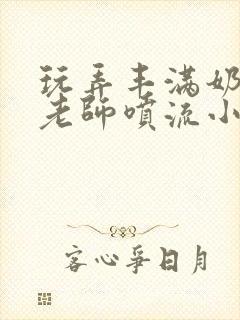 玩弄丰满奶
老師噴流小
客心爭日月